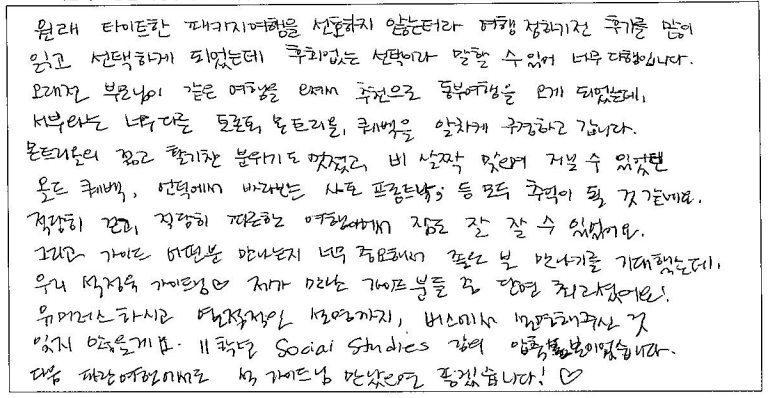 원래 타이트한 패키지여행을 선호하지 않는터라 여행 정하기전 후기를 많이
읽고 선택하게 되었는데 후회없는 선택이라 말할 수 있어 너무 다행입니다.
오래전 부모님이 같은 여행을 하셔서 추천으로 동부여행을 오게 되었는데,
서부와는 너무 다른 토론토, 몬트리올, 퀘벡을 알차게 구경하고 갑니다.
몬트리올의 젊고 활기찬 분위기도 멋졌고, 비 살짝 맞으며 거닐 수 있었던
올드 퀘벡, 언덕에서 바라보는 샤토 프롱트낙, 등 모두 추억이 될 것 같네요.
적당히 걷고, 적당히 피곤한 여행에서 잠도 잘 잘 수 있었어요.
그리고 가이드 어떤분 만나는지 너무 중요해서 좋은 분 만나기를 기대했는데,
우리 석정욱 가이드님♡ 제가 만난 가이드분들 중 단연 최고셨어요!
유머러스하시고 열정적인 설명까지, 버스에서 설명해주신 것
잊지 않을게요. 11학년 Social Studies 강의 압축 이었습니다.
다음 파란여행에서도 석 가이드님 만났으면 좋겠습니다! ♡